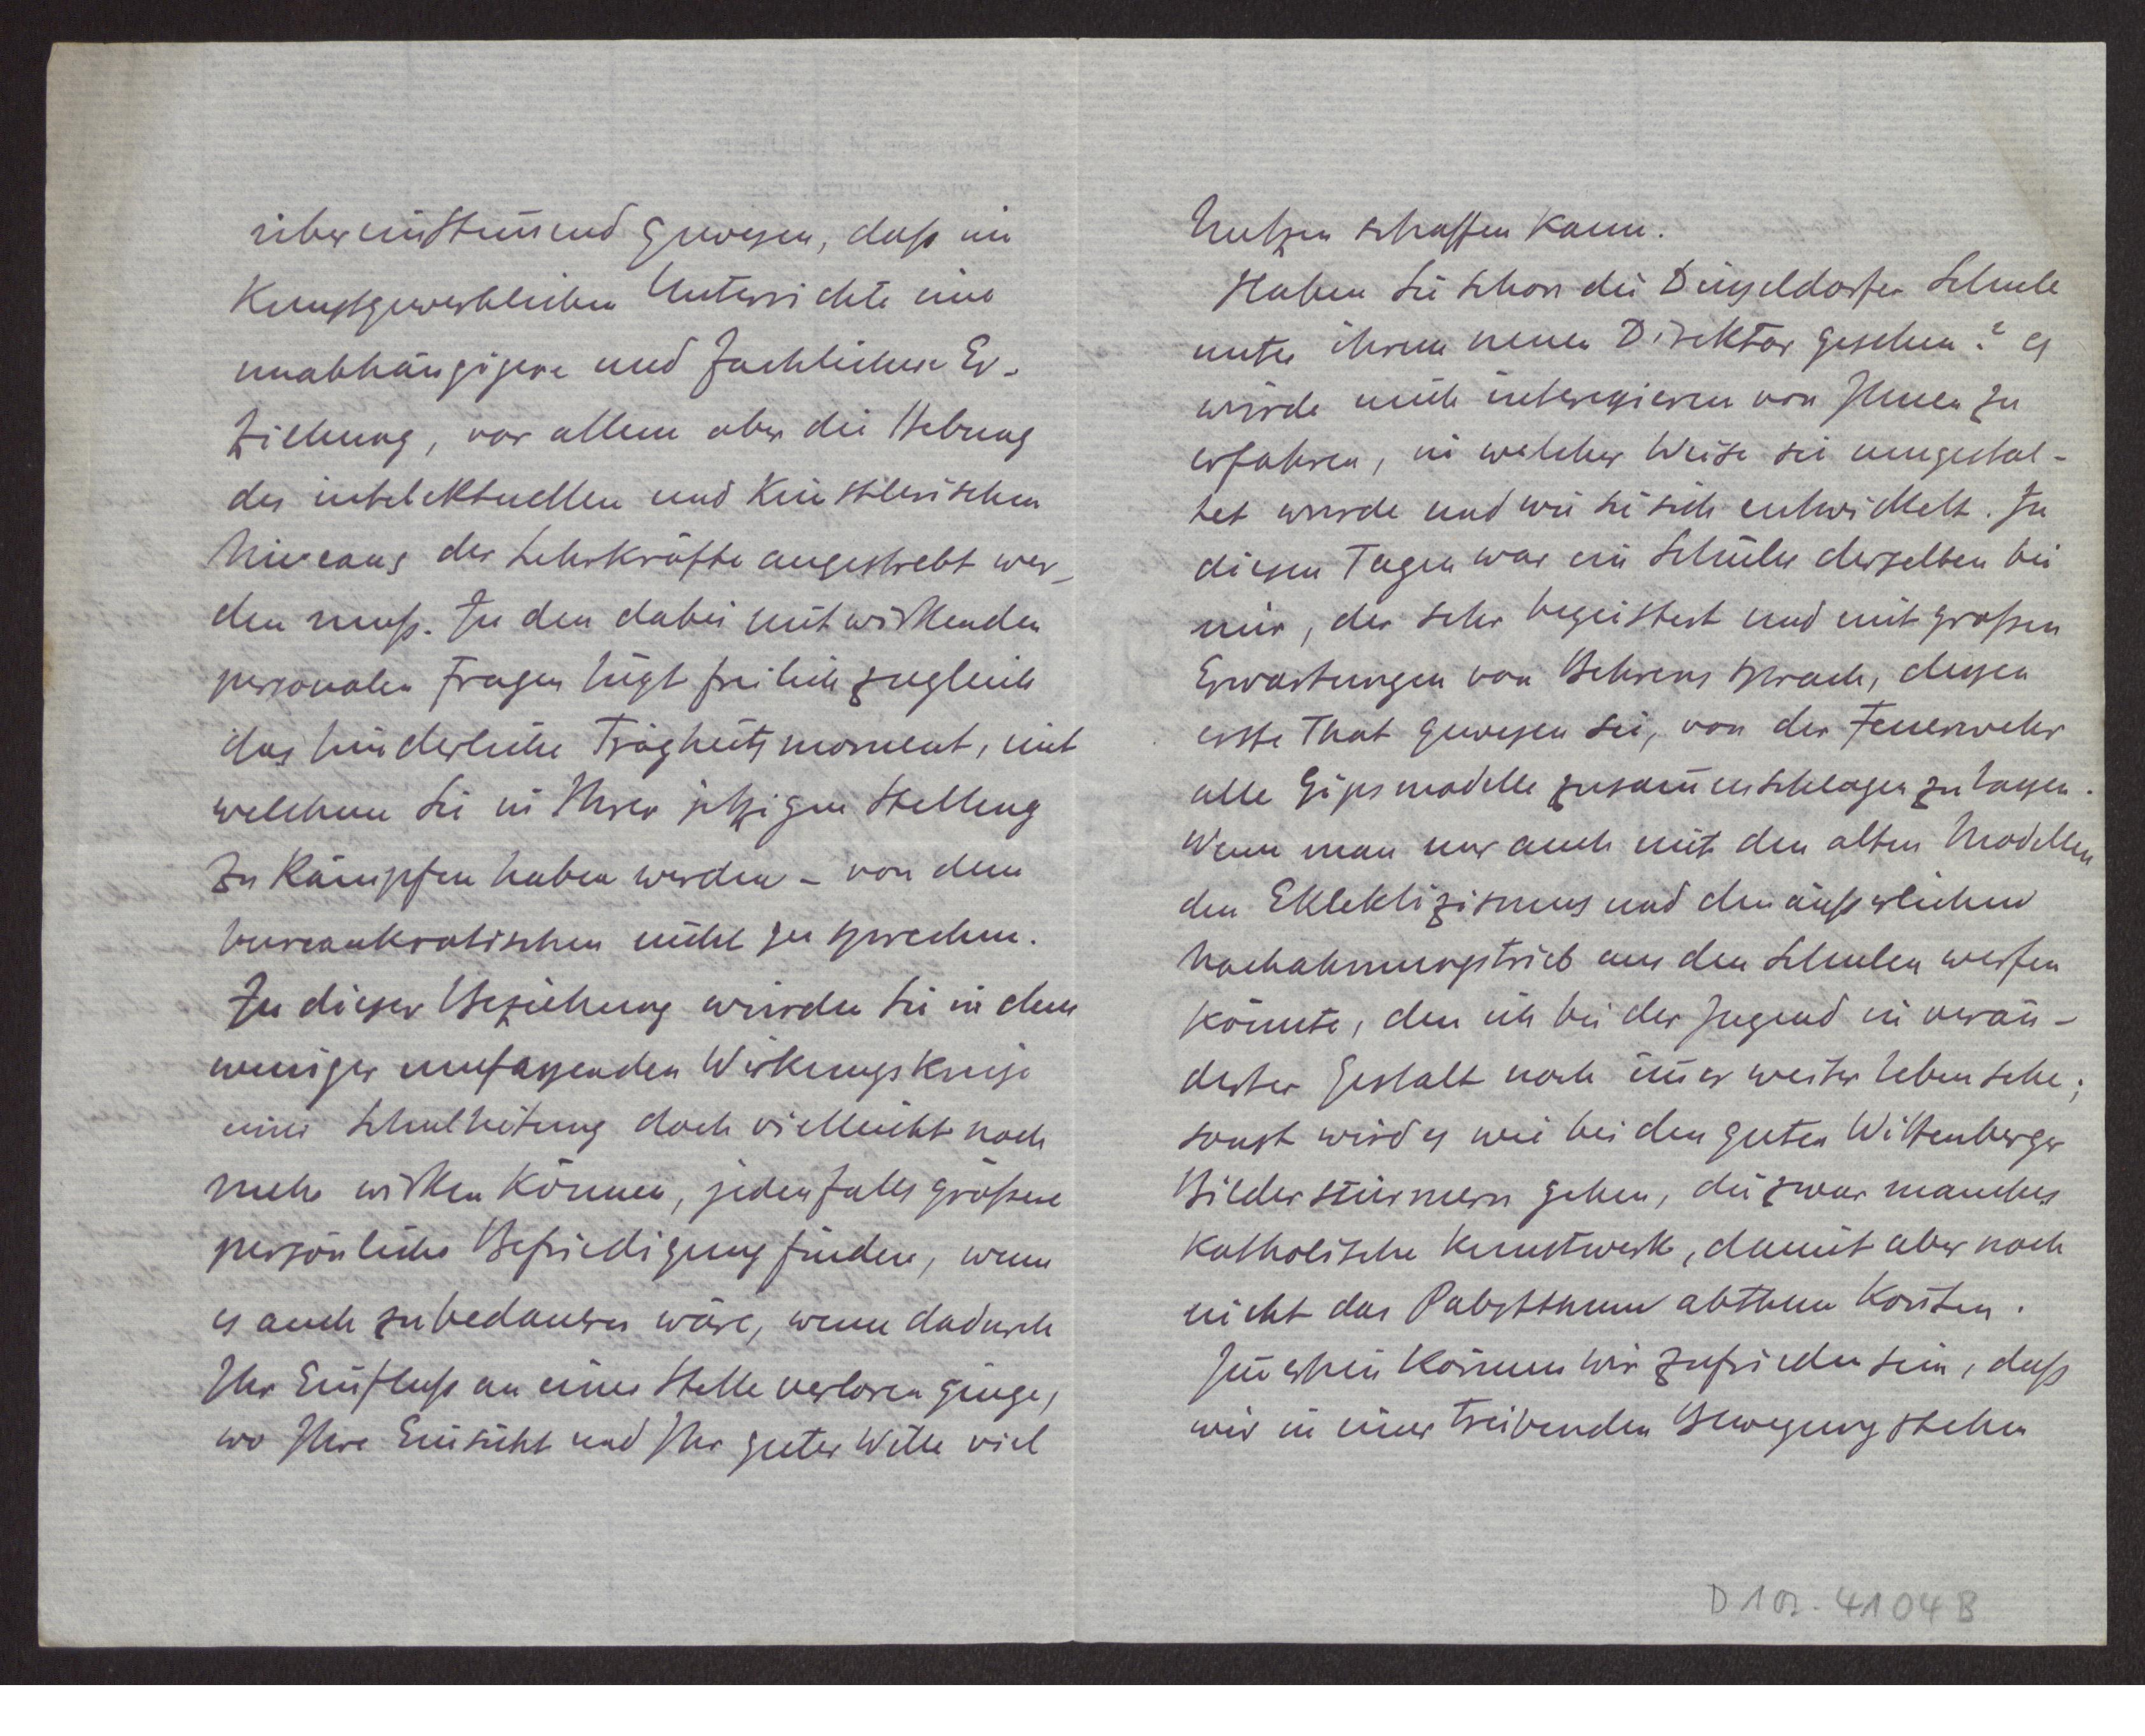 übereinstimmend gewesen, daß im
Kunstgewerblichen Unterrichte eine
unabhängigere und fachlichere Er-
ziehung, vor allem aber die Hebung
des intelektuellen und künstlerischen
Niveaus der Lehrkräfte angestrebt wer-
den muß. In den dabei mitwirkenden
personalen Fragen liegt freilich zugleich
das hinderliche Trägheitsmoment, mit
welchem Sie in Ihrer jetzigen Stellung
zu kämpfen haben werden – von dem
bureaukratischen nicht zu sprechen.
In dieser Beziehung würden Sie in dem
weniger umfassenden Wirkungskreise
einer Schulleitung doch vielleicht noch
mehr wirken können, jedenfalls größere
persönliche Befriedigung finden, wenn
es auch zu bedauern wäre, wenn dadurch
Ihr Einfluß an einer Stelle verloren ginge,
wo Ihre Einsicht und Ihr guter Wille viel
Nutzen schaffen kann.
Haben Sie schon die Düsseldorfer Schule
unter ihrem neuen Direktor gesehen? Es
würde mich interessieren von Ihnen zu
erfahren, in welcher Weise sie umgestal-
tet wurde und wie sie sich entwickelt. In
diesen Tagen war ein Schüler derselben bei
mir, der sehr begeistert und mit großen
Erwartungen von Behrens sprach, dessen
erste That gewesen sei, von der Feuerwehr
alle Gipsmodelle zusam̄enschlagen zu lassen.
Wenn man nur auch mit den alten Modellen
den Eklektizismus und den äußerlichen
Nachahmungstrieb aus den Schulen werfen
könnte, den ich bei der Jugend in verän-
derter Gestalt noch im̄er weiter leben sehe;
sonst wird es wie bei den guten Wittenberger
Bilderstürmern gehen, die zwar manches
katholische Kunstwerk, damit aber noch
nicht das Pabstthum abthun konnten.
Im̄erhin können wir zufrieden sein, daß
wir in einer treibenden Bewegung stehen
41 04 B